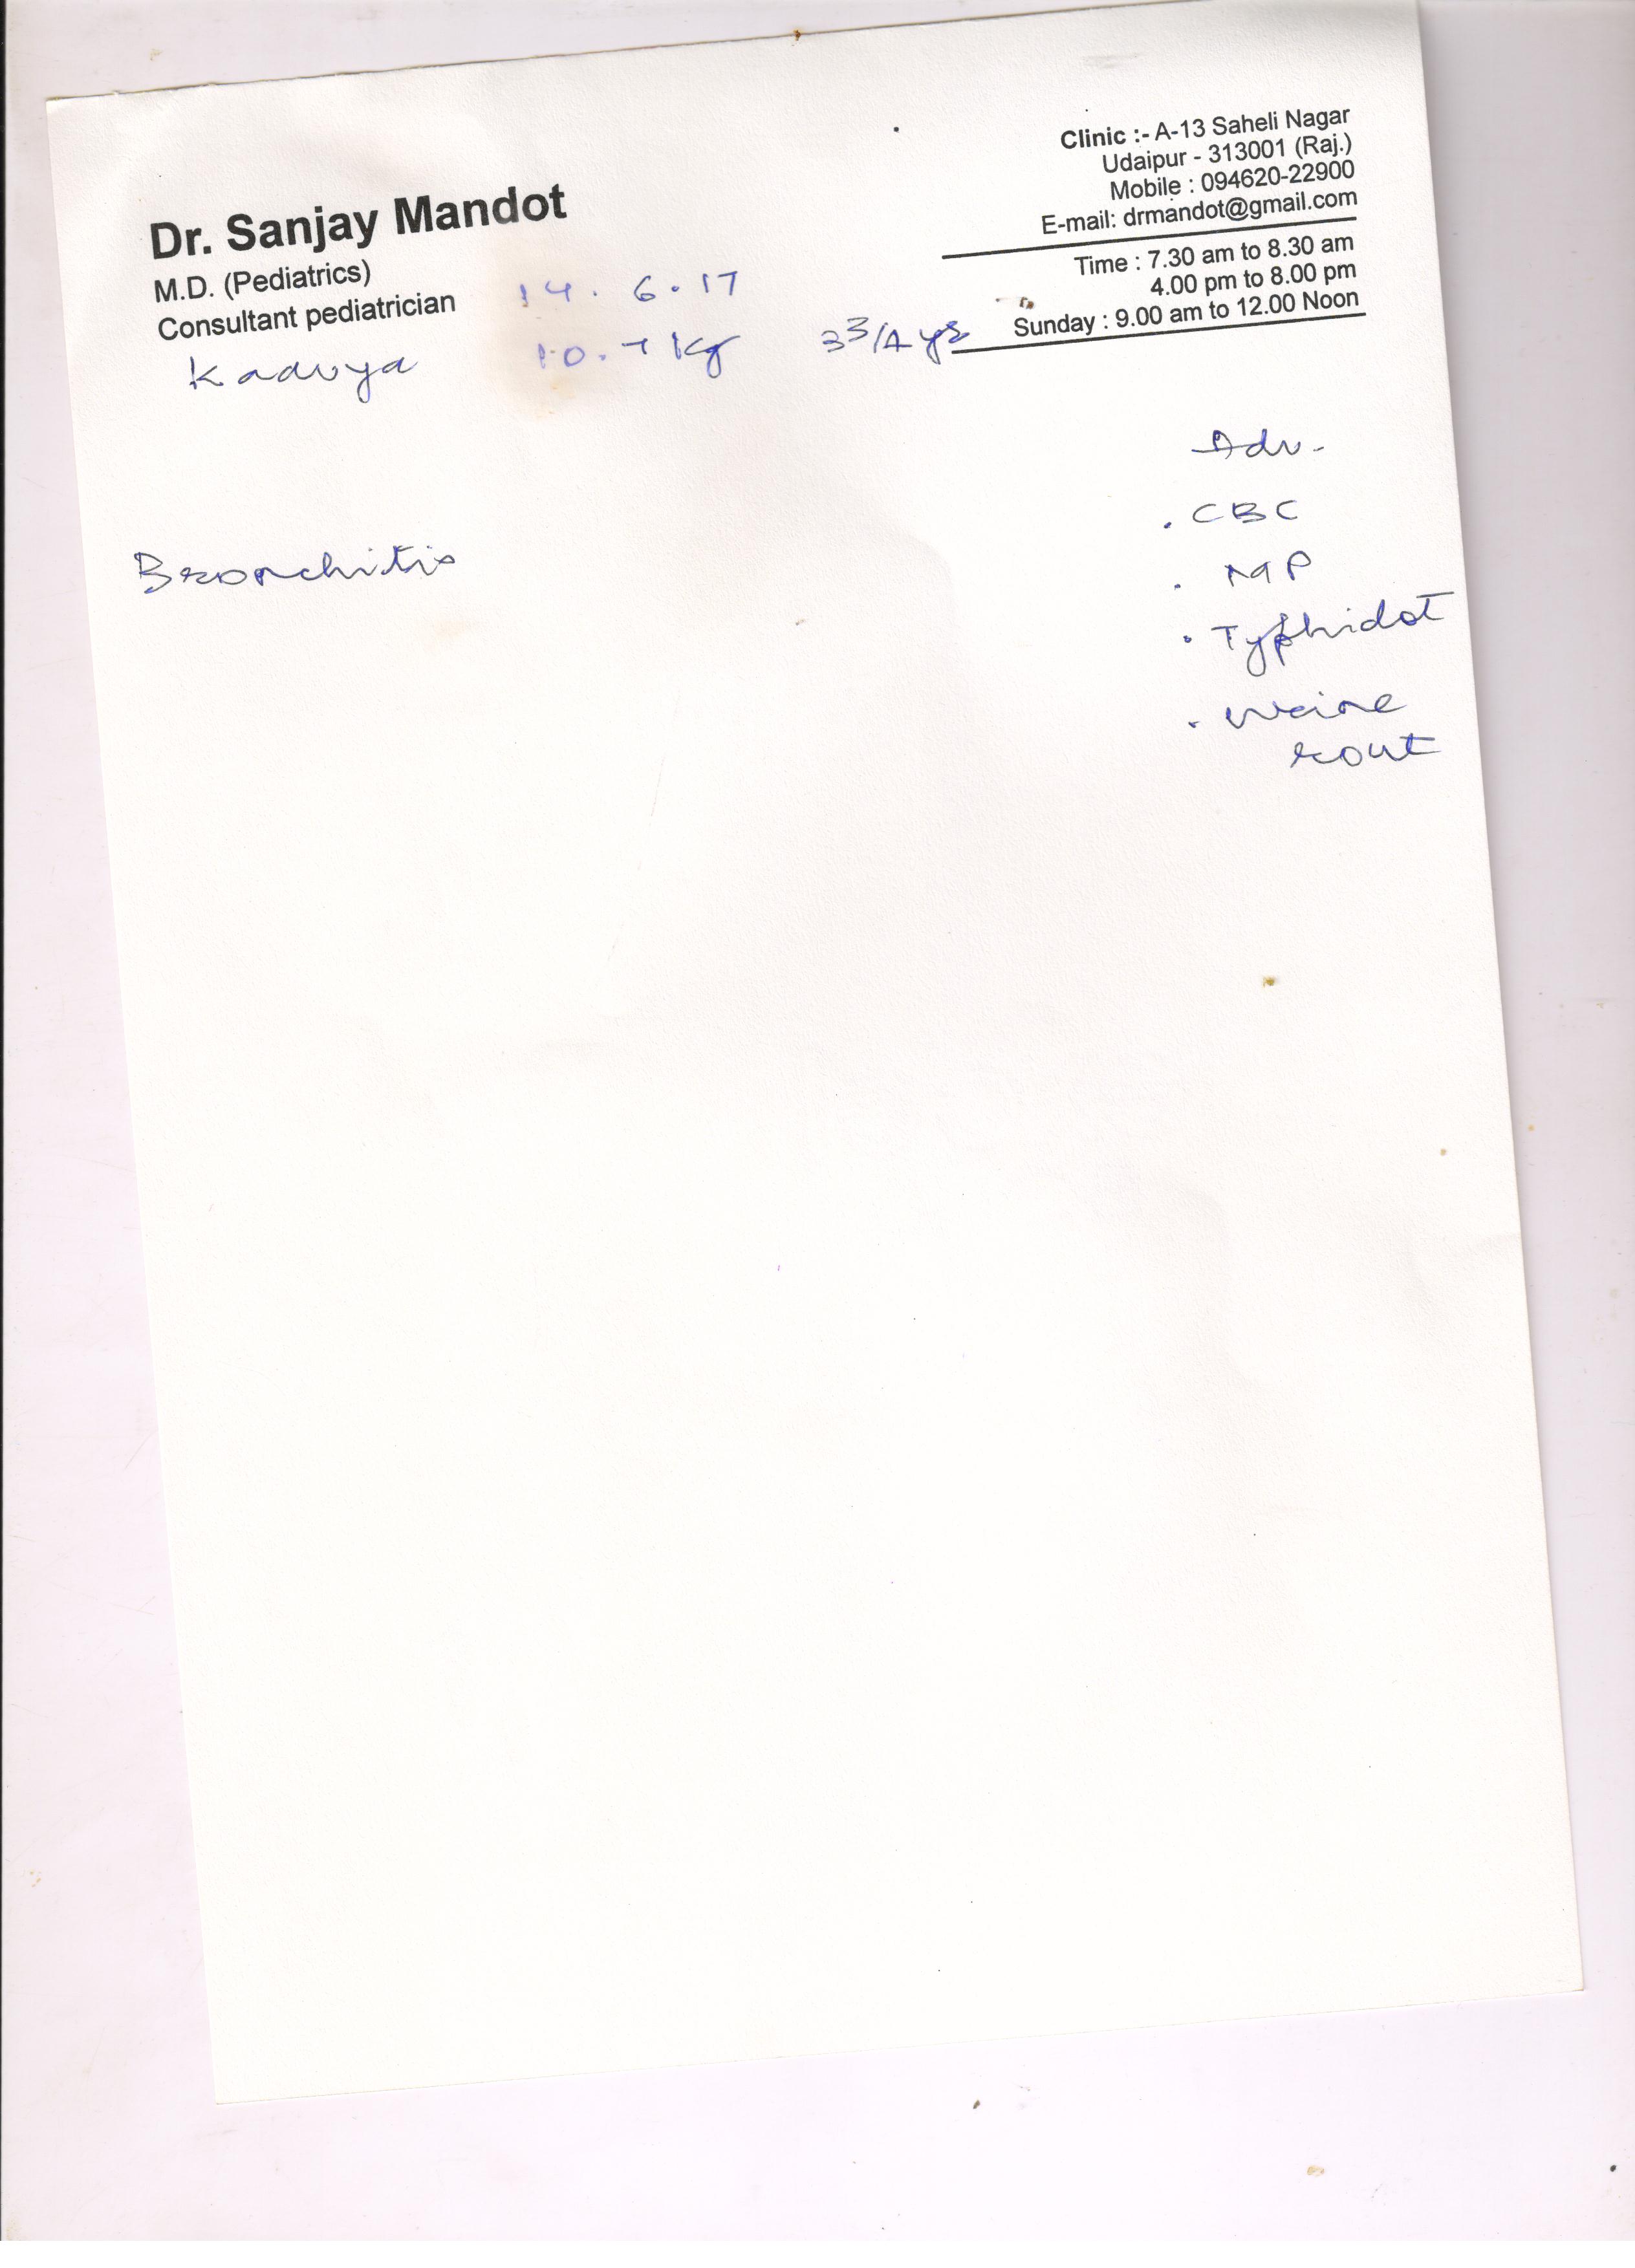 Dr. Sanjay Mandot
M.D. (Pediatrics)
Consultant pediatrician
Clinic :- A-13 Saheli Nagar
Udaipur - 313001 (Raj.)
Mobile : 094620-22900
E-mail: drmandot@gmail.com
Time : 7.30 am to 8.30 am
4.00 pm to 8.00 pm
Sunday : 9.00 am to 12.00 Noon
14. 6. 17
Kaavya 10.7 kg 3 3/4 yrs
Adv.
. CBC
. MP
. Typhidot
. Urine
rout
Bronchitis